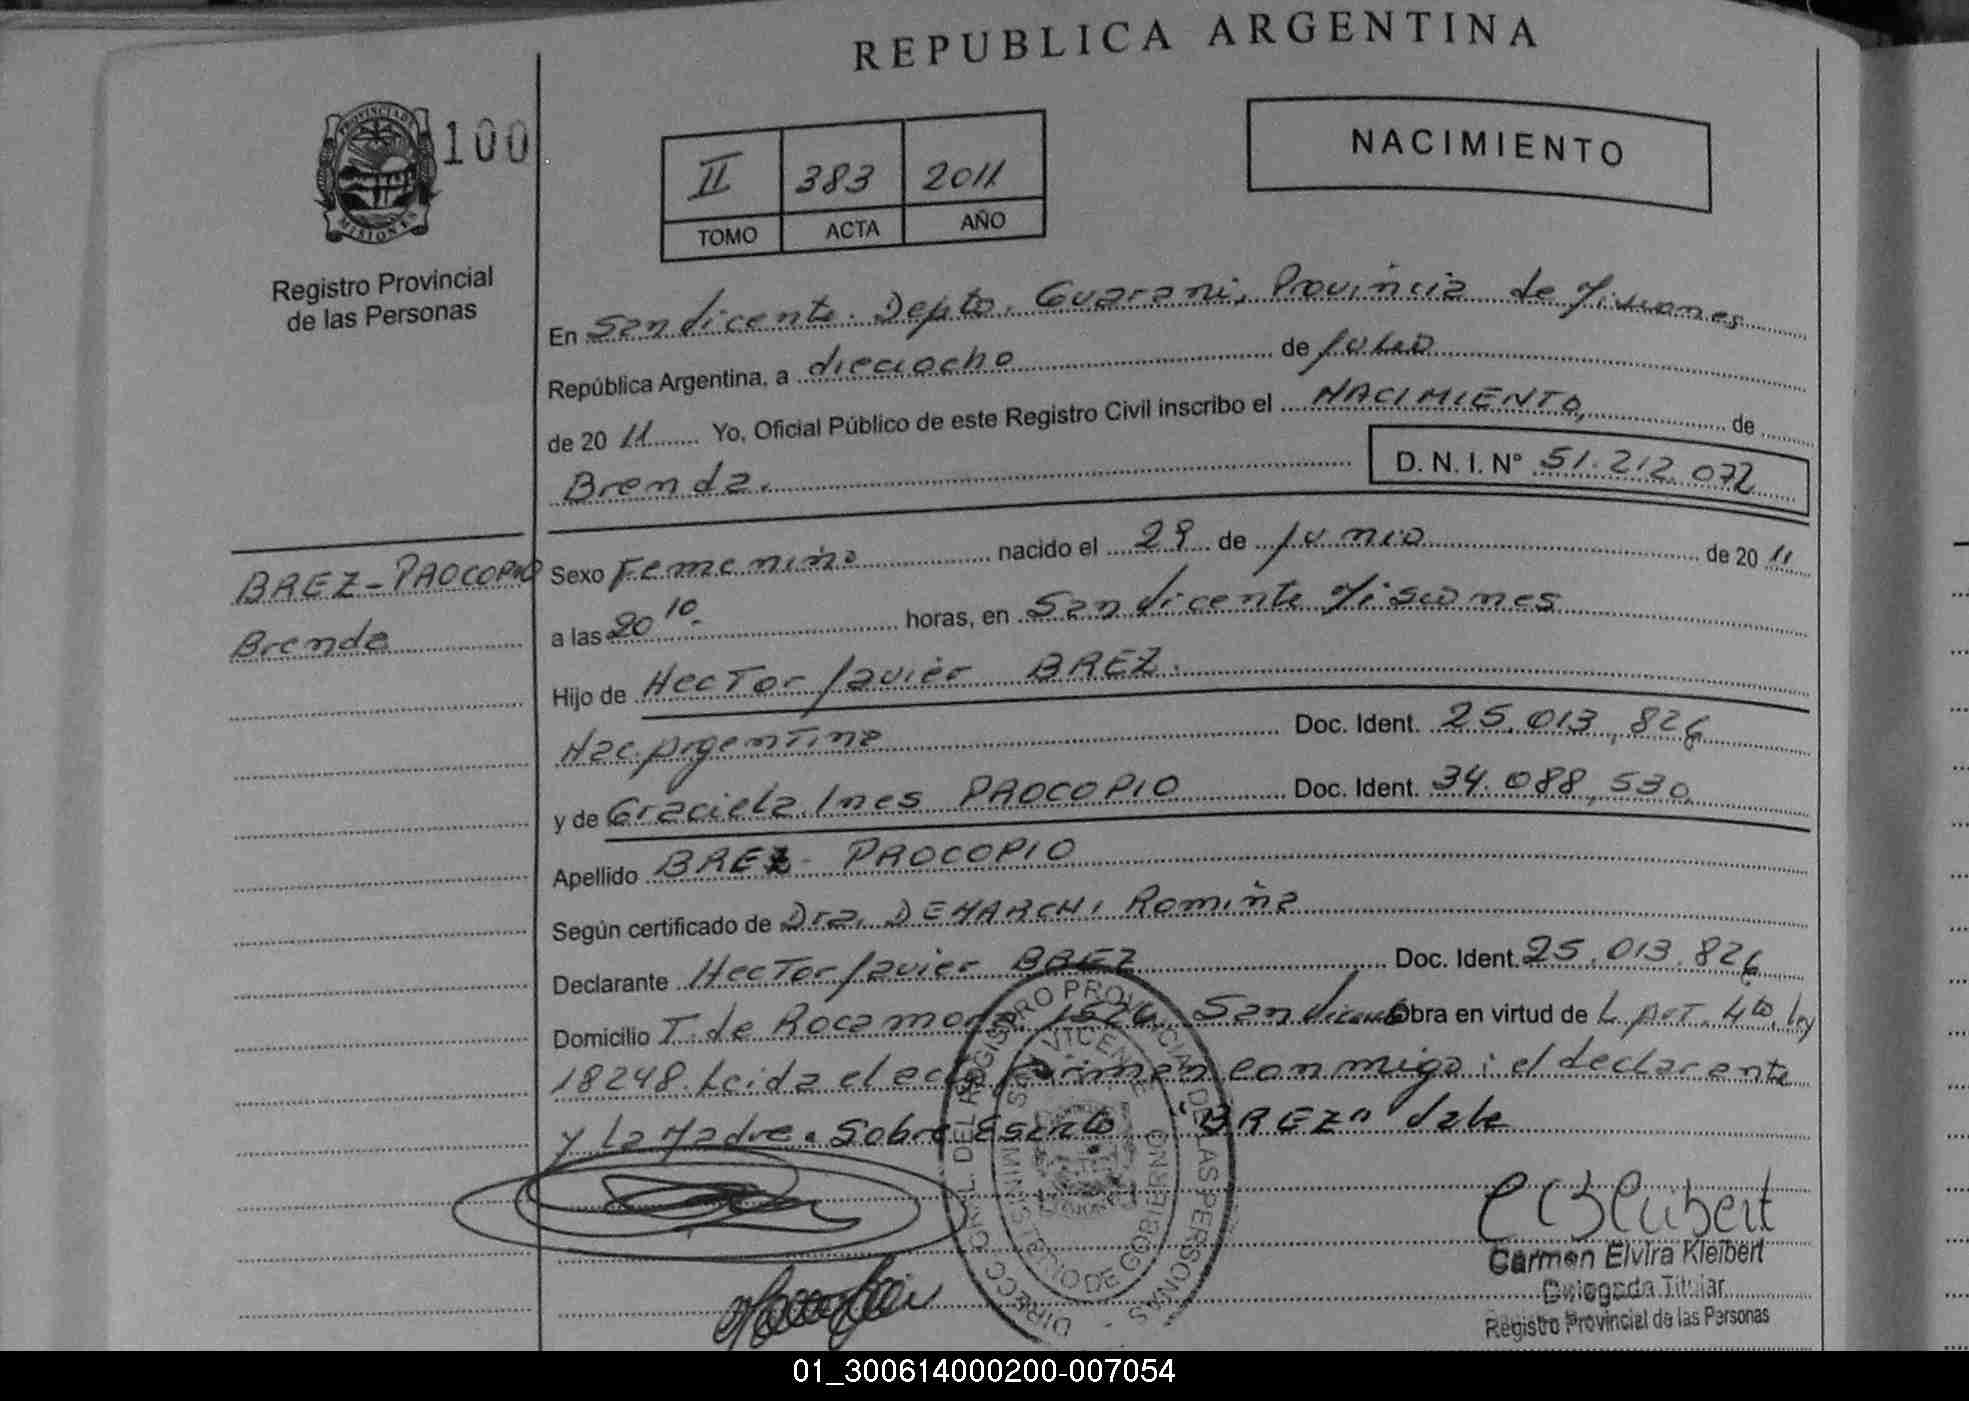 REPUBLICA ARGENTINA
PROVINCIA DE
MISIONES
100
Registro Provincial
de las Personas
II 383 2011
TOMO ACTA AÑO
NACIMIENTO
En San Vicente. Depto. Guarani, Provincia de Misiones
República Argentina, a dieciocho de julio
de 20 11 Yo, Oficial Público de este Registro Civil inscribo el NACIMIENTO, de
Brenda. D. N. I. N° 51.212.072
BAEZ-PROCOPIO
Brenda
Sexo Femenino nacido el 29 de junio de 20 11
a las 20 10. horas, en San Vicente Misiones
Hijo de Hector Javier BAEZ.
Nac. Argentina Doc. Ident. 25.013.826
y de Graciela Ines PROCOPIO Doc. Ident. 34.088.530
Apellido BAEZ- PROCOPIO
Según certificado de Dra. DEMARCHI Romina
Declarante Hector Javier BAEZ Doc. Ident. 25.013.826
Domicilio T. de Rocamora 1526 San Vicente Obra en virtud de L. Art. 4to. Ley
18248. Leida el acta firman conmigo: el declarante
y La Madre. Sobre Escrito "BAEZ" Vale
DIRECC. GRAL. DEL REGISTRO PROVINCIAL DE LAS PERSONAS
SAN VICENTE
MINISTERIO DE GOBIERNO
Carmen Elvira Kleibert
Delegada Titular
Registro Provincial de las Personas
01_300614000200-007054